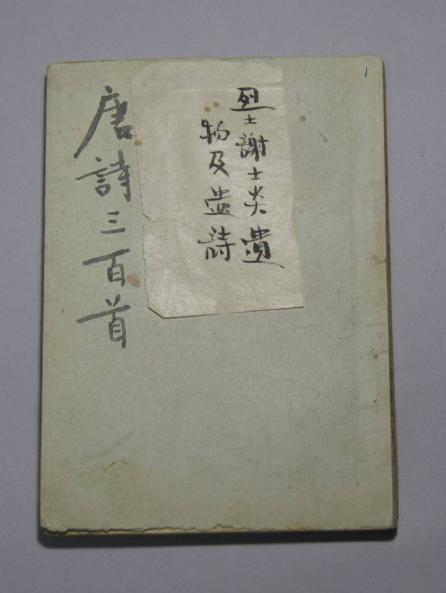 烈士謝士炎遺
物及遺詩
唐詩三百首
1